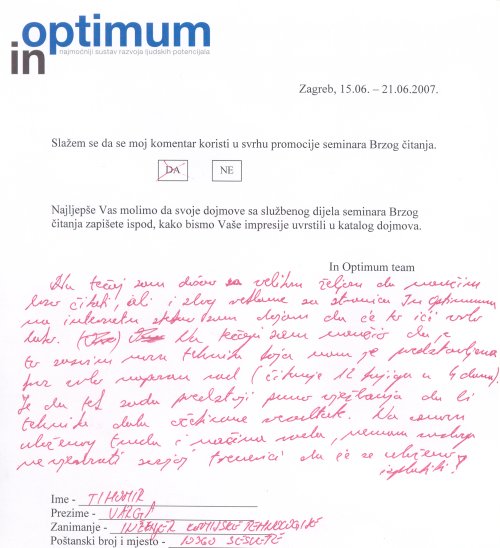 in optimum
najmoćniji sustav razvoja ljudskih potencijala
Zagreb, 15.06. – 21.06.2007.
Slažem se da se moj komentar koristi u svrhu promocije seminara Brzog čitanja.
DA NE
Najljepše Vas molimo da svoje dojmove sa službenog dijela seminara Brzog
čitanja zapišete ispod, kako bismo Vaše impresije uvrstili u katalog dojmova.
In Optimum team
Na tečaj sam došao sa velikom željom da naučim
brzo čitati, ali i zbog reklame sa stranica In Optimuma
na internetu sam dojam da će to ići vrlo
lako. Na tečaju sam naučio da je
to sasvim nova tehnika koja nam je predstavljena
kroz vrlo naporan rad (čitanje 12 knjiga u 4 dana).
Je da tek sada predstoji puno vježbanja da bi
tehnika dala očekivane rezultate. Na osnovu
uloženog truda i načina rada, nemam razloga
ne vjerovati svojoj trenerici da će se uloženo
isplatiti!
Ime - TIHOMIR
Prezime - VARGA
Zanimanje - INŽENJER KEMIJSKE TEHNOLOGIJE
Poštanski broj i mjesto - 10360 SESVETE